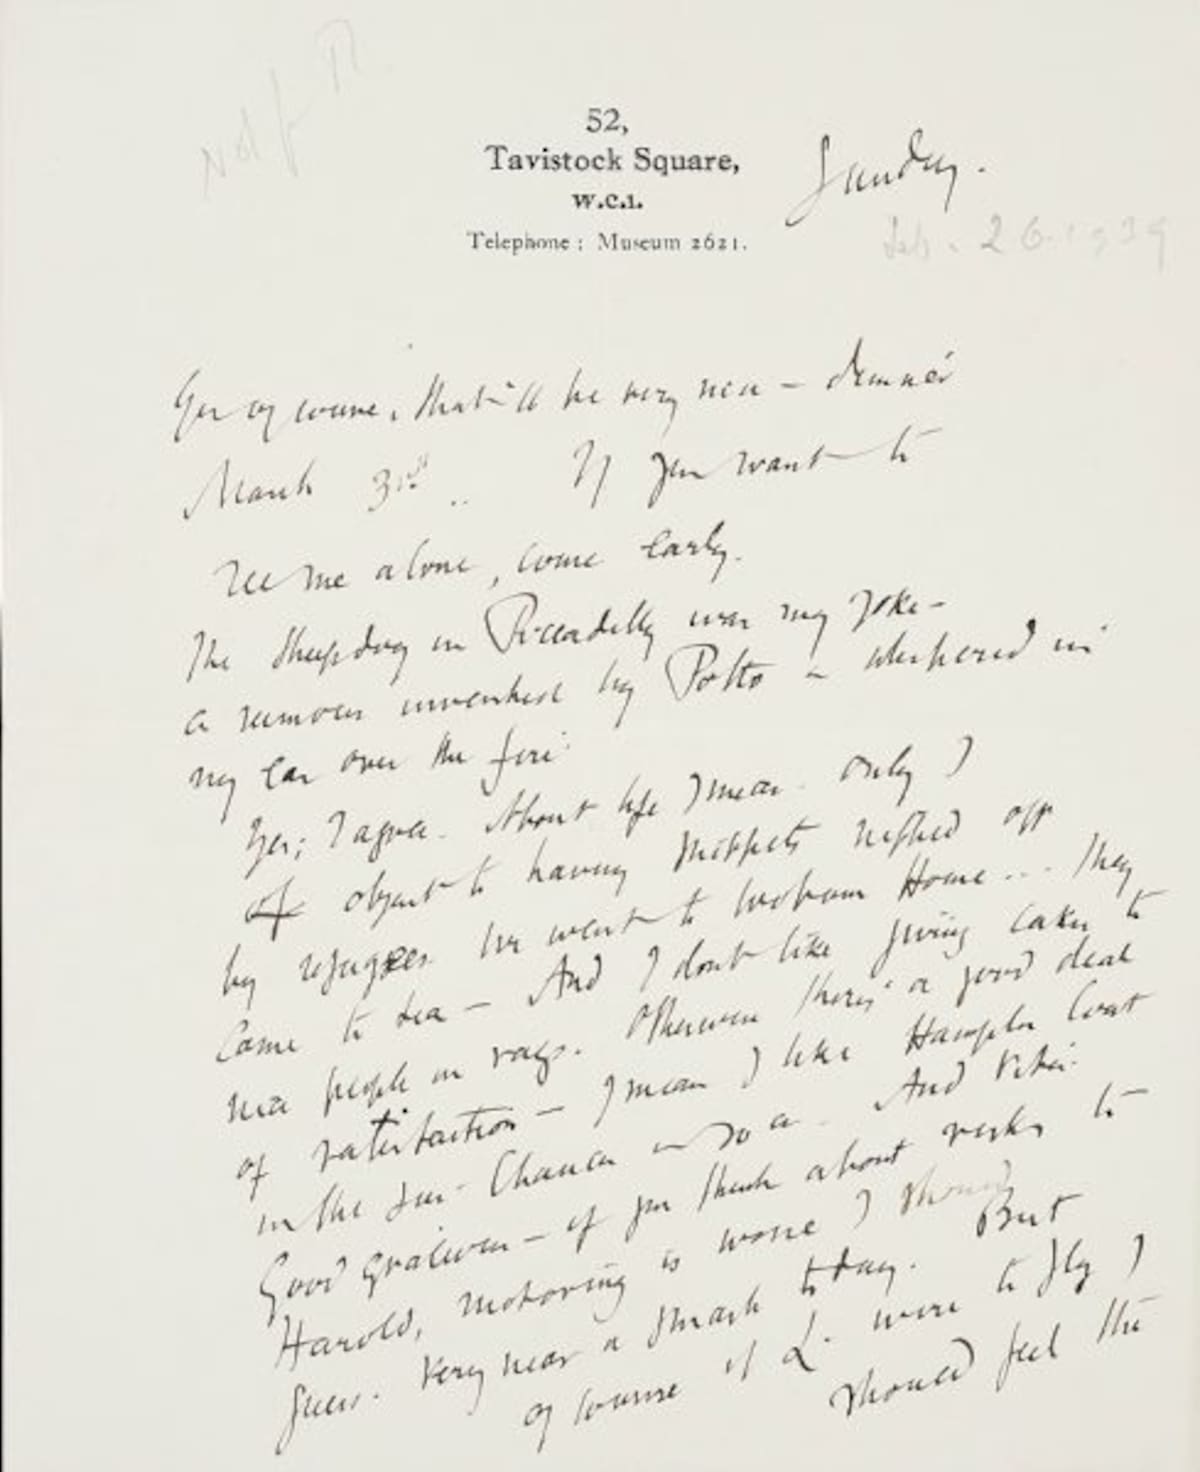 52,
Tavistock Square,
W.C.1.
Telephone: Museum 2621.
Sunday.
Feb. 26. 1939
Yes of course, that'll be very nice – dinner
March 3rd .. If you want to
see me alone, come early.
The sheepdog in Piccadilly was my joke –
a rumour invented by Potto – whispered in
my ear over the fire.
Yes; I agree. About life I mean. Only I
object to having snippets nipped off
by refugees. We went to Woburn House ... They
came to tea – And I dont like giving cakes to
nice people in rags. Otherwise there's a good deal
of satisfaction – I mean I like Hampton Court
in the sun. Chaucer so on. And Vita.
Good gracious – if you think about risks to
Harold, motoring is worse I should
guess. Very near a smash today. But
of course if L. were to fly I
should feel the